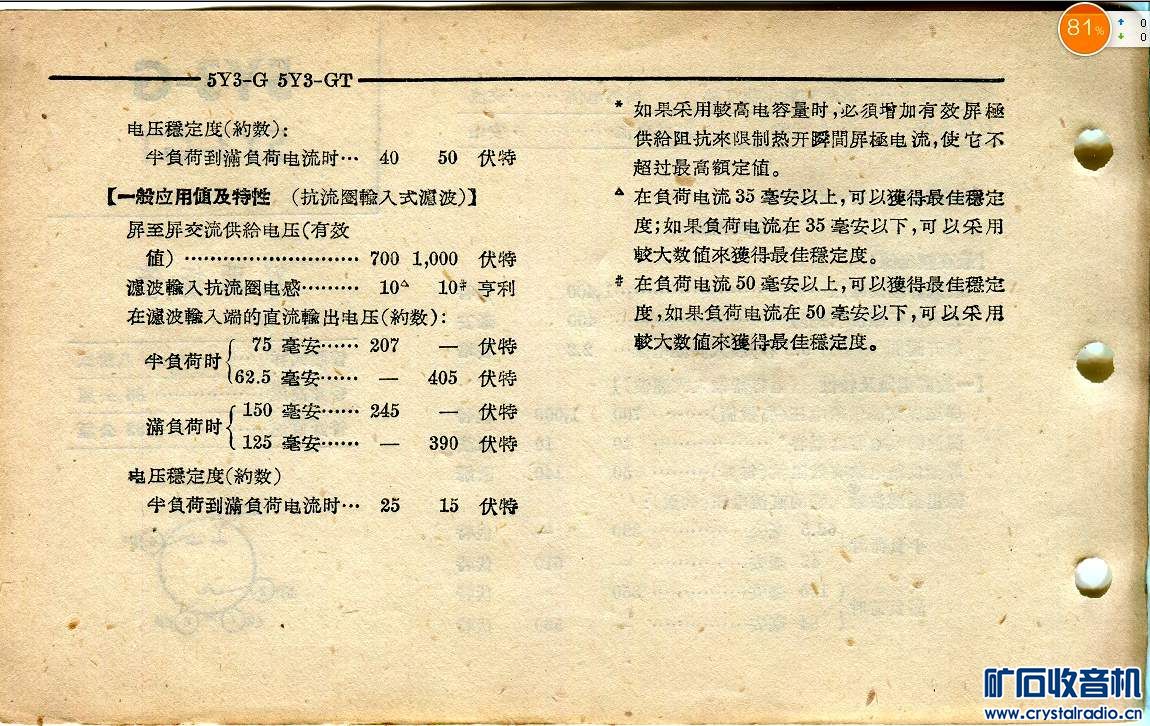 81%
0
0
5Y3-G 5Y3-GT
电压穩定度(約数):
半負荷到滿負荷电流时… 40 50 伏特
【一般应用値及特性 (抗流圈輸入式濾波)】
屏至屏交流供給电压(有效
値) ……………………… 700 1,000 伏特
濾波輸入抗流圈电感……… 10△ 10# 亨利
在濾波輸入端的直流輸出电压(約数):
半負荷时 { 75 毫安…… 207 — 伏特
62.5 毫安…… — 405 伏特
滿負荷时 { 150 毫安…… 245 — 伏特
125 毫安…… — 390 伏特
电压穩定度(約数)
半負荷到滿負荷电流时… 25 15 伏特
* 如果采用較高电容量时,必須增加有效屏極
供給阻抗來限制热开瞬間屏極电流,使它不
超过最高額定値。
△ 在負荷电流 35 毫安以上,可以獲得最佳穩定
度;如果負荷电流在 35 毫安以下,可以采用
較大数値來獲得最佳穩定度。
# 在負荷电流 50 毫安以上,可以獲得最佳穩定
度,如果負荷电流在 50 毫安以下,可以采用
較大数値來獲得最佳穩定度。
矿石收音机
www.crystalradio.cn